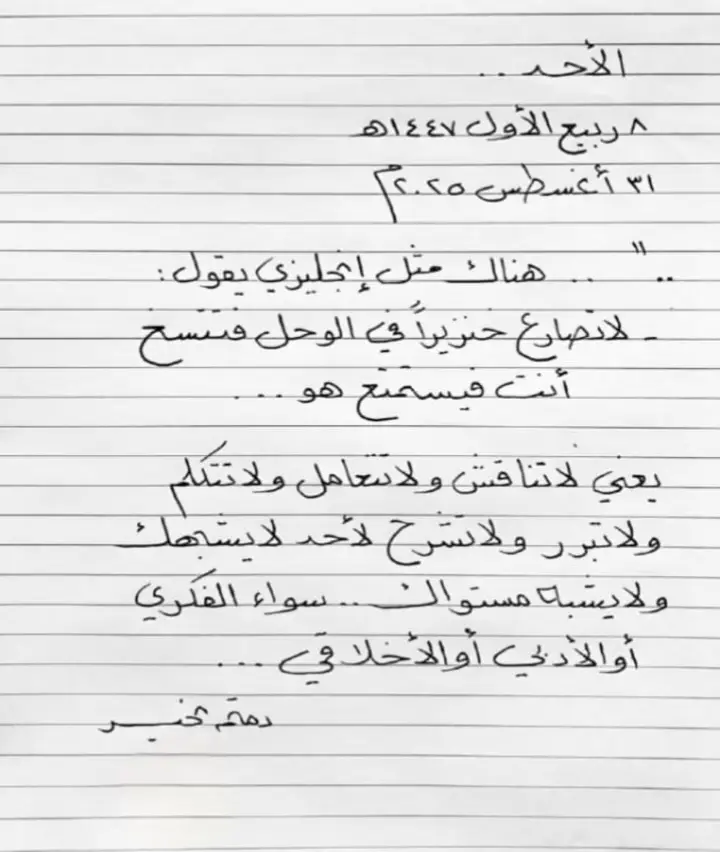 الأحد ..
٨ ربيع الأول ١٤٤٧هـ
٣١ أغسطس ٢٠٢٥م
.. " .. هناك مثل إنجليزي يقول :
- لاتصارع خنزيراً في الوحل فتتسخ
أنت فيستمتع هو ...
يعني لاتناقش ولاتتعامل ولاتتكلم
ولاتبرر ولاتشرح لأحد لايشبهك
ولايشبه مستواك .. سواء الفكري
أو الأدبي أو الأخلاقي ...
دمتم بخير